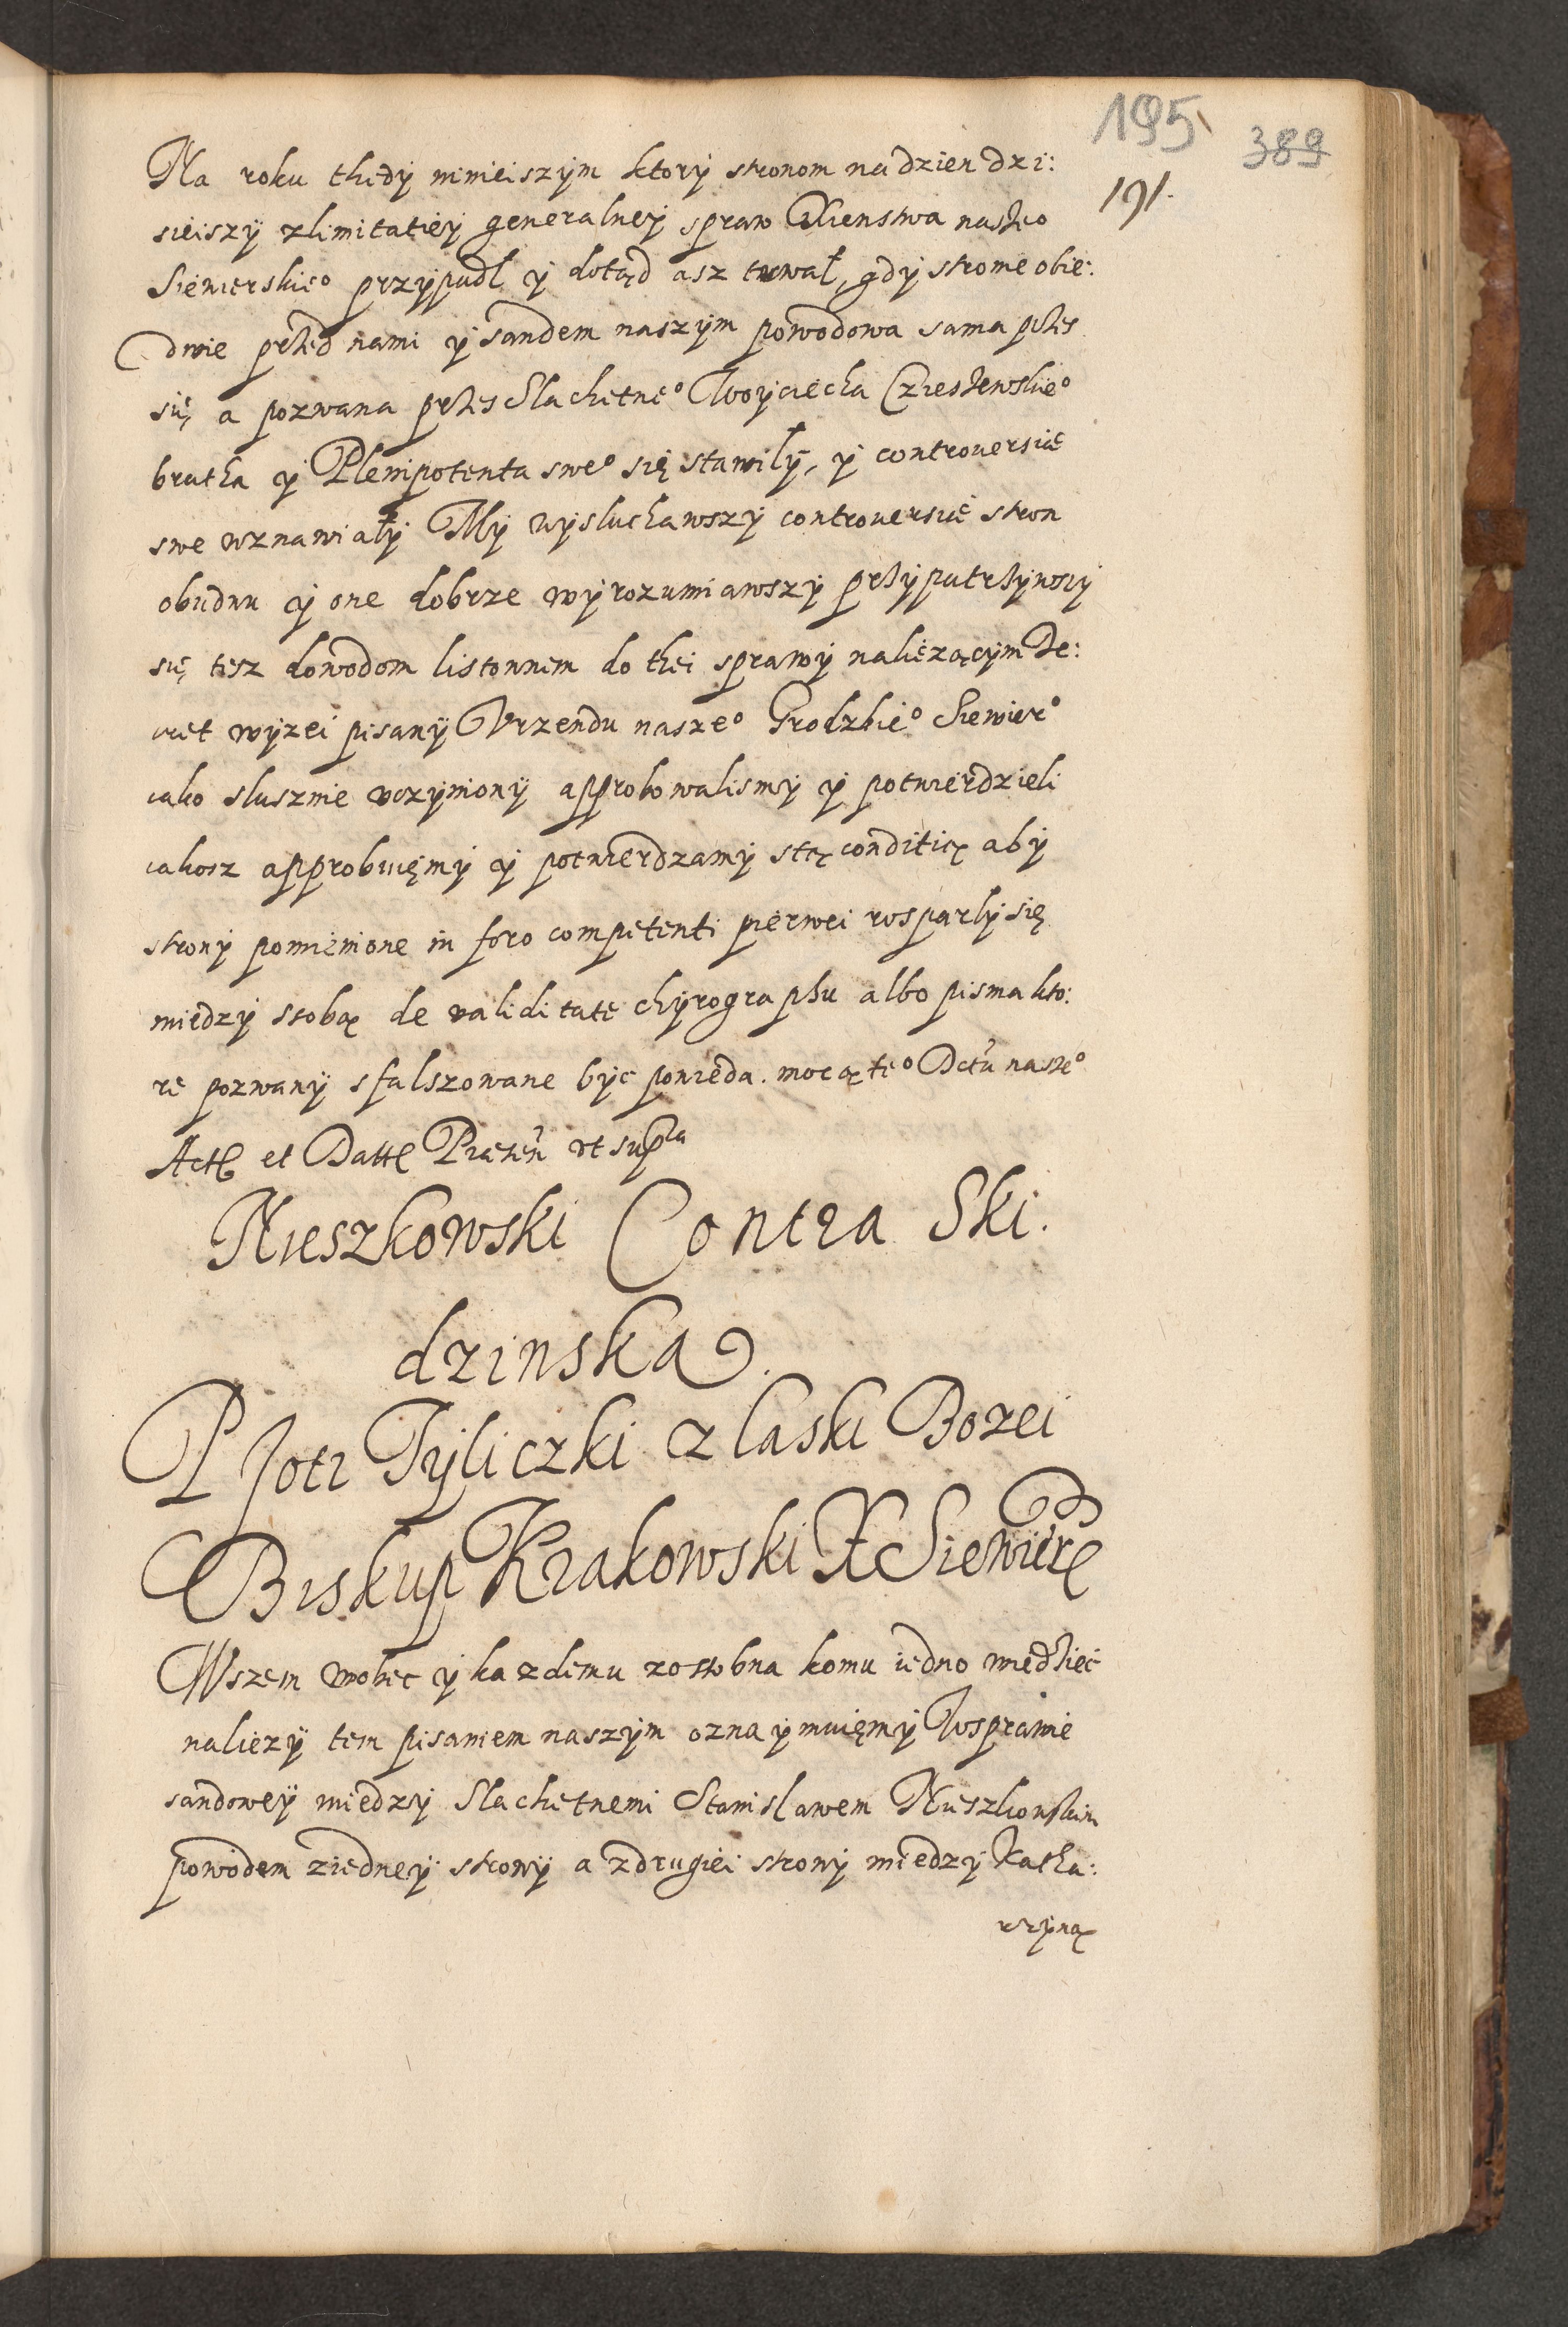 195
389
191.
Na roku thedÿ ninieiszÿm ktorÿ stronom na dzien dzi:
sieiszÿ z limitatieÿ generalneÿ spraw Xienstwa naszeo
Siewierskieo przÿpadł ÿ dotąd asz trwał, gdÿ stronie obie:
dwie przed nami ÿ sandem naszÿm powodowa sama przes
się, a pozwana przes Slachetneo Woÿciecha Czieszewskieo
bratha ÿ Plenipotenta sweo się stawiłÿ, ÿ controuersie
swe wznawiałÿ Mÿ wÿsluchawszÿ controuersie stron
obudwu ÿ one dobrze wÿrozumiawszÿ przÿpatrzÿwszÿ
się tesz dowodom listownem do thei sprawÿ należącÿm De:
cret wÿzei pisanÿ Vrzendu naszeo Grodzkieo Siewiero
iako slusznie vczÿnionÿ approbowalismÿ ÿ potwierdzieli
iakosz approbuięmÿ ÿ potwierdzamÿ s tą conditią abÿ
stronÿ pomienione in foro competenti pierwei rosparlÿ się
miedzÿ ssobą de validitate chÿrographu albo pisma kto:
re pozwanÿ sfalszowane bÿc powieda. mocą teo Dctu naszeo
Act et Datt Praesen vt supra
Nieszkowski Contra Ski.
dzinska.
PJotr Tÿliczki z laski Bozei
Biskup Krakowski X Siewier
Wszem wobec ÿ kazdemu zossobna komu iedno wiedziec
nalezÿ tem pisaniem naszÿm oznaÿmuięmÿ Jz w sprawie
sandoweÿ miedzÿ Slachetnemi Stanislawem Nieszkowskim
powodem z iedneÿ stronÿ a z drugiei stronÿ miedzÿ Katha:
rzÿną